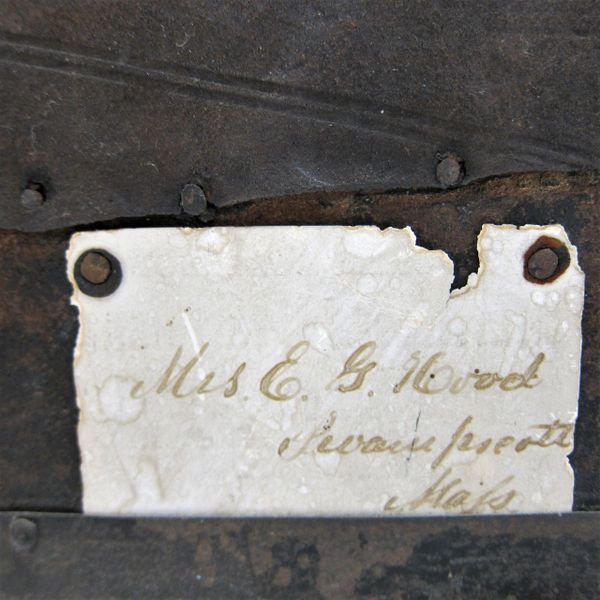 Mrs. E. G. Hood
Swampscott
Mass